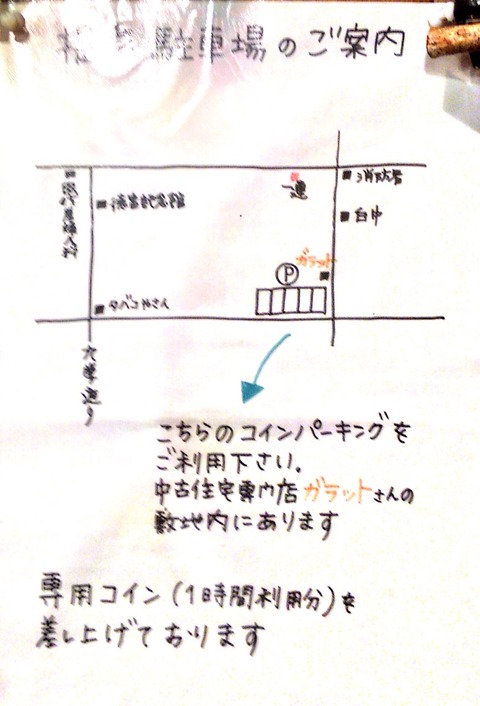 駐車場のご案内
消防署
一連
白中
ガラット
P
タバコやさん
大学通り
こちらのコインパーキングを
ご利用下さい。
中古住宅専門店ガラットさんの
敷地内にあります
専用コイン(1時間利用分)を
差し上げております